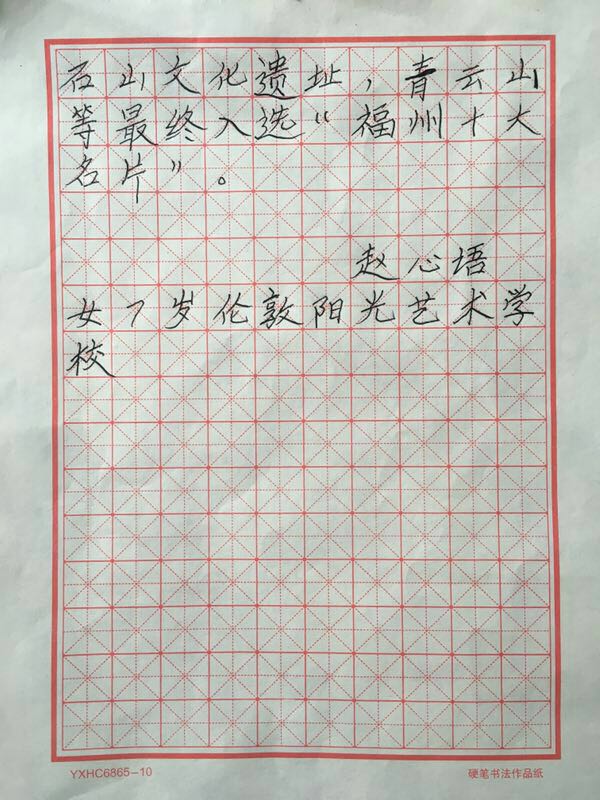 石山文化遗址，青云山
等最终入选“福州十大
名片”。
赵心语
女7岁伦敦阳光艺术学
校
YXHC6865-10
硬笔书法作品纸